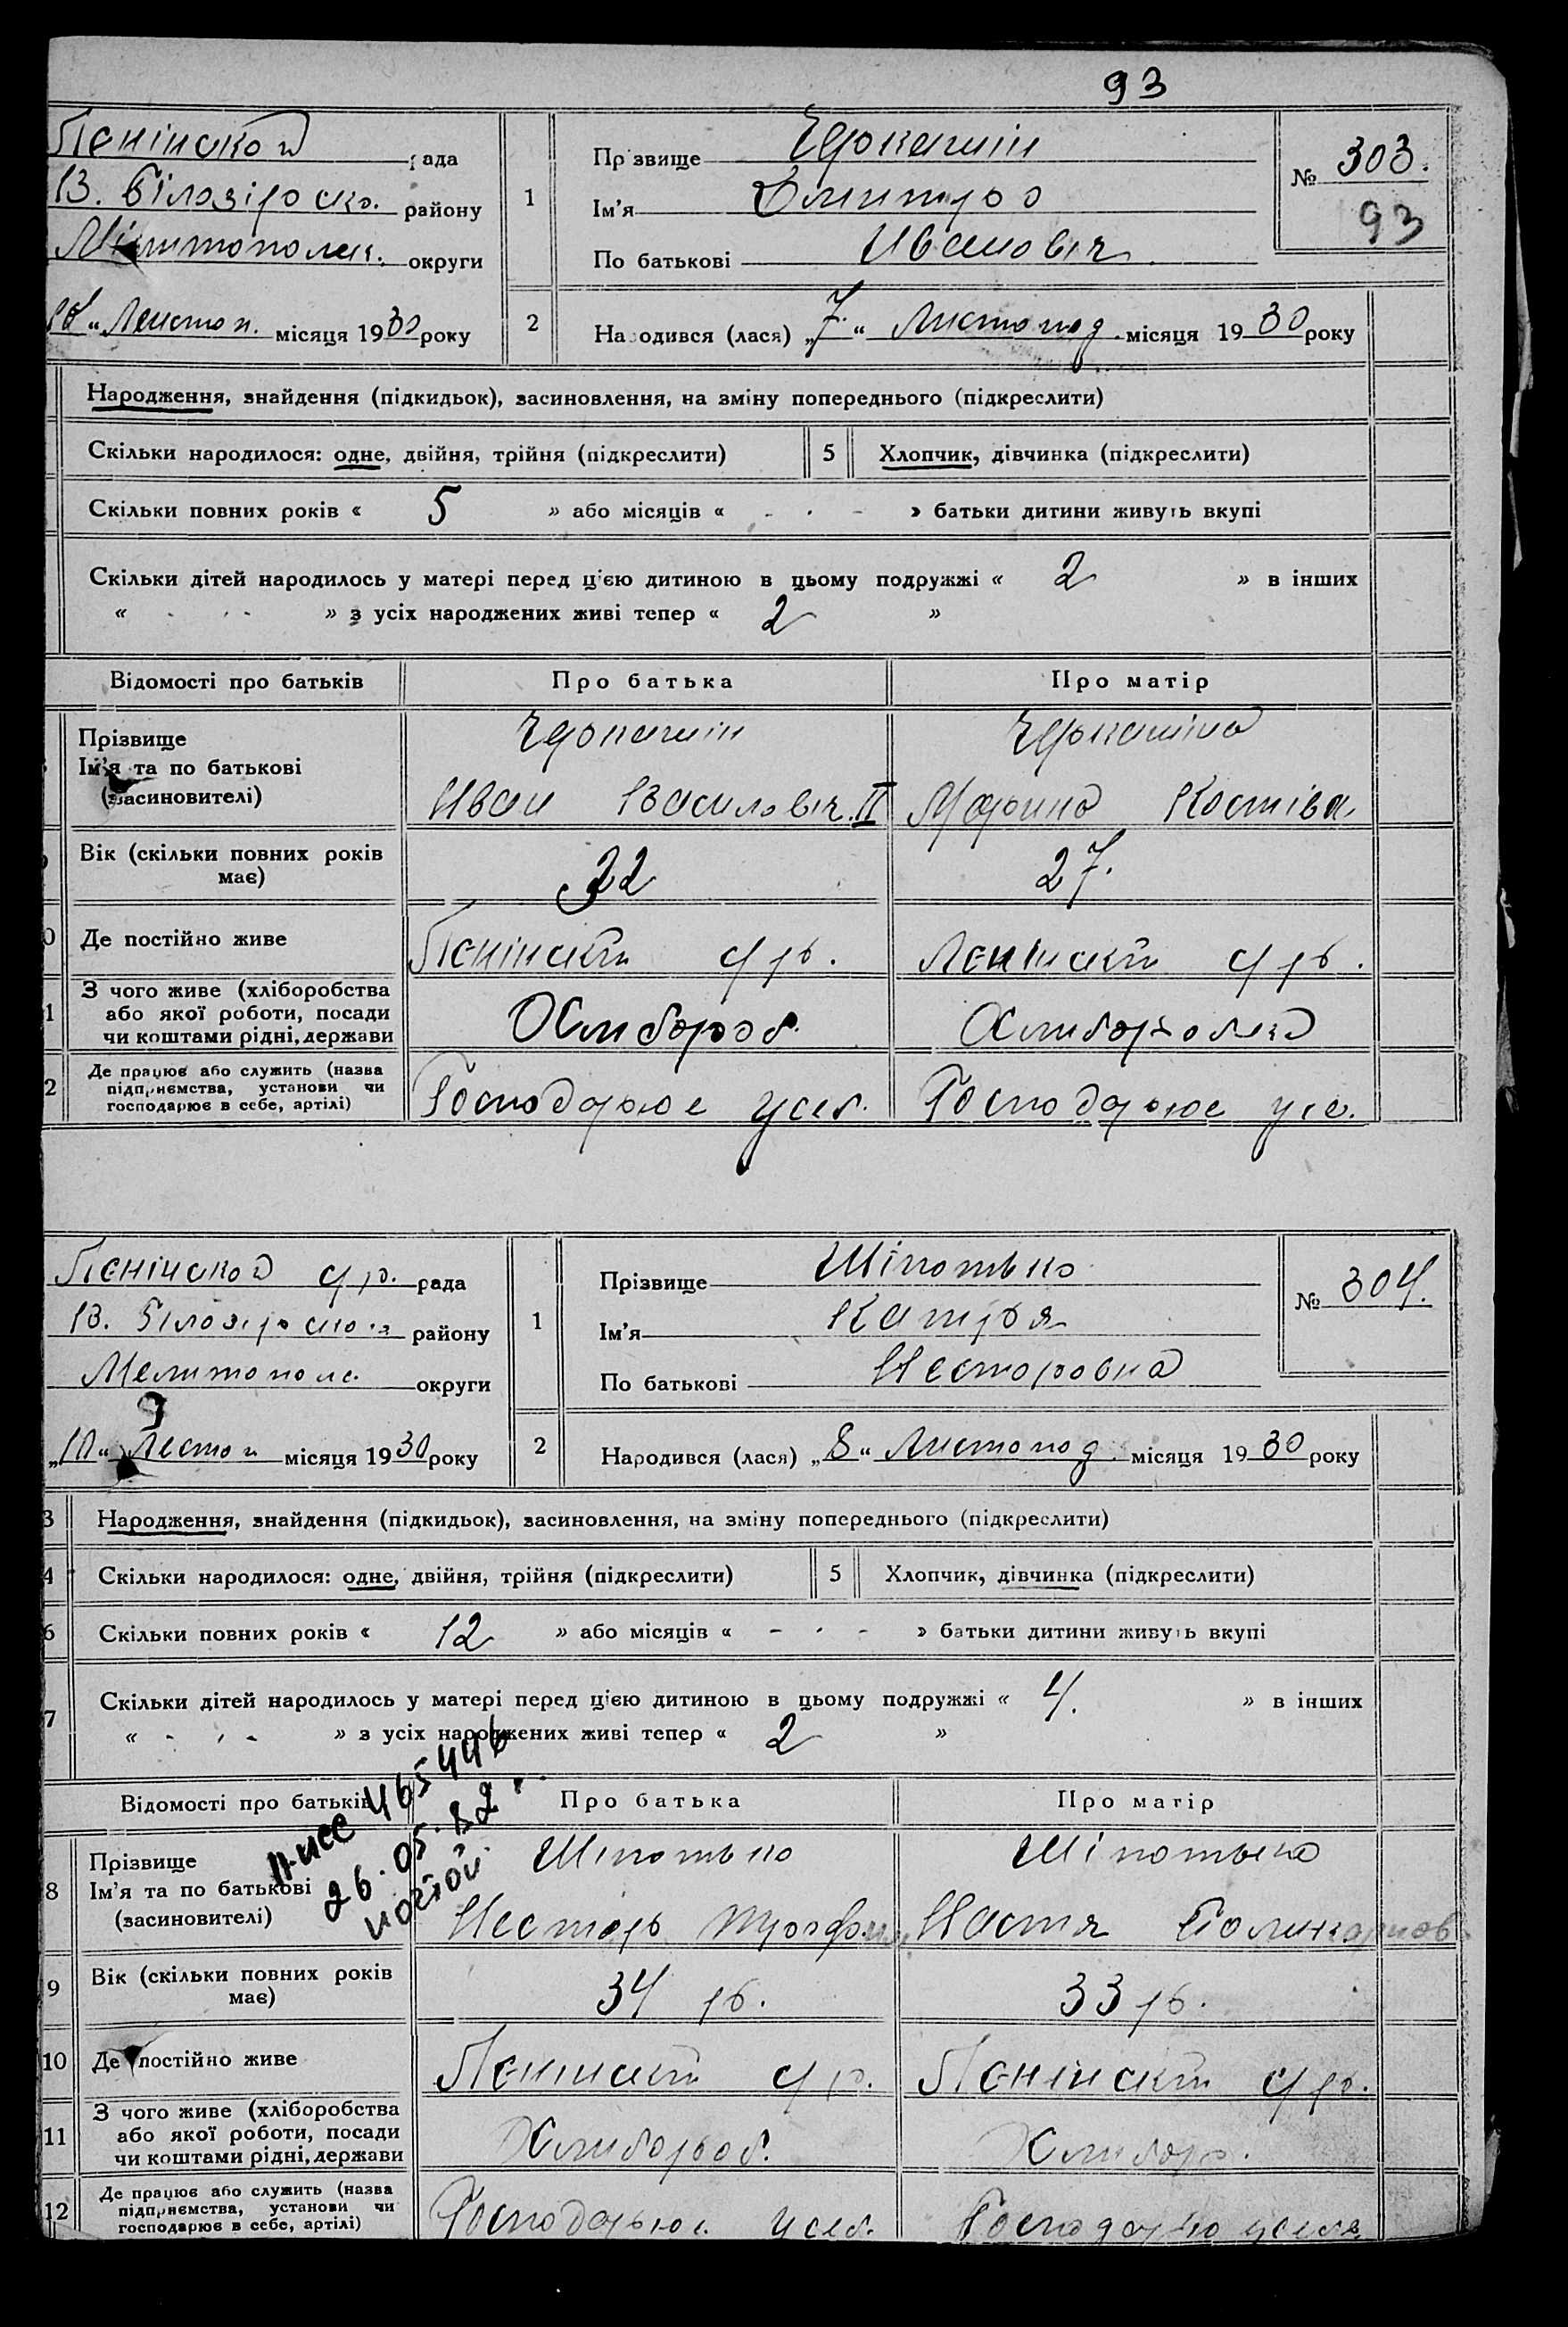 93
Ленінской рада
В. Білозірско. району
Мелитополь. округи
10 " Листоп. місяця 1930 року
1
Прізвище Черкашін
Ім'я Дмитро
По батькові Иванович
№ 303.
93
2
Народився (лася) „7." Листопад місяця 1930 року
Народження, знайдення (підкидьок), засиновлення, на зміну попереднього (підкреслити)
Скільки народилося: одне, двійня, трійня (підкреслити) 5 Хлопчик, дівчинка (підкреслити)
Скільки повних років « 5 » або місяців « - - - » батьки дитини живуть вкупі
Скільки дітей народилось у матері перед цією дитиною в цьому подружжі « 2 » в інших
« - - - » з усіх народжених живі тепер « 2 »
Відомості про батьків Про батька Про матір
Прізвище
Ім'я та по батькові
(засиновителі)
Черкашін
Иван Василович. II
Черкашіна
Марина Костівн.
Вік (скільки повних років
має)
32
27.
0 Де постійно живе Ленінскі ср. Ленінскі ср.
1 З чого живе (хліборобства
або якої роботи, посади
чи коштами рідні, держави
Хлибороб.
Хлиборобка
2 Де працює або служить (назва
підприємства, установи чи
господарює в себе, артілі)
Господарює усеб.
Господарює усе.
Ленінской ср. рада
В. Білозірскоя району
Мелитополь. округи
„10" Листоп місяця 1930 року
1
Прізвище Шіпотько
Ім'я Катря
По батькові Несторовна
№ 304.
2
Народився (лася) „8" Листопад місяця 1930 року
3 Народження, знайдення (підкидьок), засиновлення, на зміну попереднього (підкреслити)
4 Скільки народилося: одне, двійня, трійня (підкреслити) 5 Хлопчик, дівчинка (підкреслити)
6 Скільки повних років « 12 » або місяців « - - - » батьки дитини живуть вкупі
7 Скільки дітей народилось у матері перед цією дитиною в цьому подружжі « 4. » в інших
« - - - » з усіх народжених живі тепер « 2 »
465446
26.05.82г.
Відомості про батьків Про батька Про матір
8 Прізвище
Ім'я та по батькові
(засиновителі)
Шіпотько
Нестор Трофим
Шіпотька
Настя Поликарпов
9 Вік (скільки повних років
має)
34 р.
33 р.
10 Де постійно живе Ленінскі ср. Ленінскі ср.
11 З чого живе (хліборобства
або якої роботи, посади
чи коштами рідні, держави
Хлибороб.
Хлибор.
12 Де працює або служить (назва
підприємства, установи чи
господарює в себе, артілі)
Господарює усеб.
Господарю усебе.